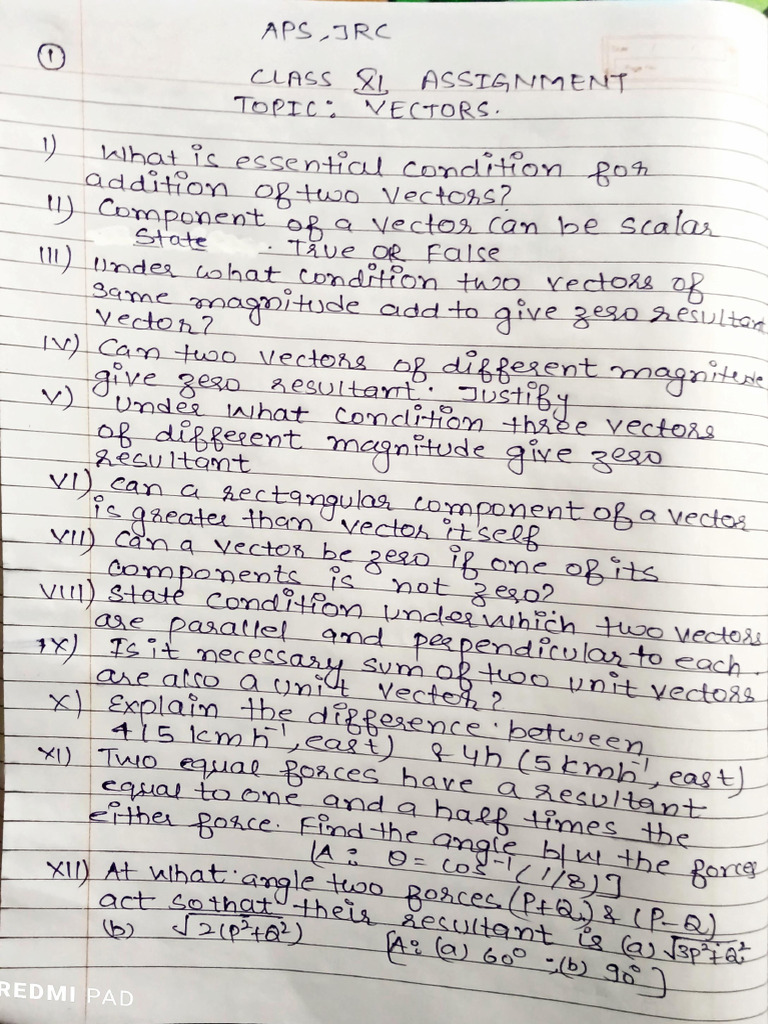 APS, JRC
①
CLASS XI ASSIGNMENT
TOPIC: VECTORS.
I) What is essential condition for
addition of two Vectors?
II) Component of a vector can be scalar
State . True OR False
III) Under what condition two vectors of
same magnitude add to give zero resultant
vector?
IV) Can two vectors of different magnitude
give zero resultant. Justify
V) Under what condition three vectors
of different magnitude give zero
resultant
VI) Can a rectangular component of a vector
is greater than vector itself
VII) Can a vector be zero if one of its
components is not zero?
VIII) State condition under which two vectors
are parallel and perpendicular to each.
IX) Is it necessary sum of two unit vectors
are also a unit vector?
X) Explain the difference between
4(5 kmh⁻¹, east) & 4h (5 kmh⁻¹, east)
XI) Two equal forces have a resultant
equal to one and a half times the
either force. Find the angle b/w the forces
[A: θ = cos⁻¹(1/8)]
XII) At what angle two forces (P+Q) & (P-Q)
act so that their resultant is (a) √3P²+Q²
(b) √2(P²+Q²) [A: (a) 60° ; (b) 90°]
REDMI PAD